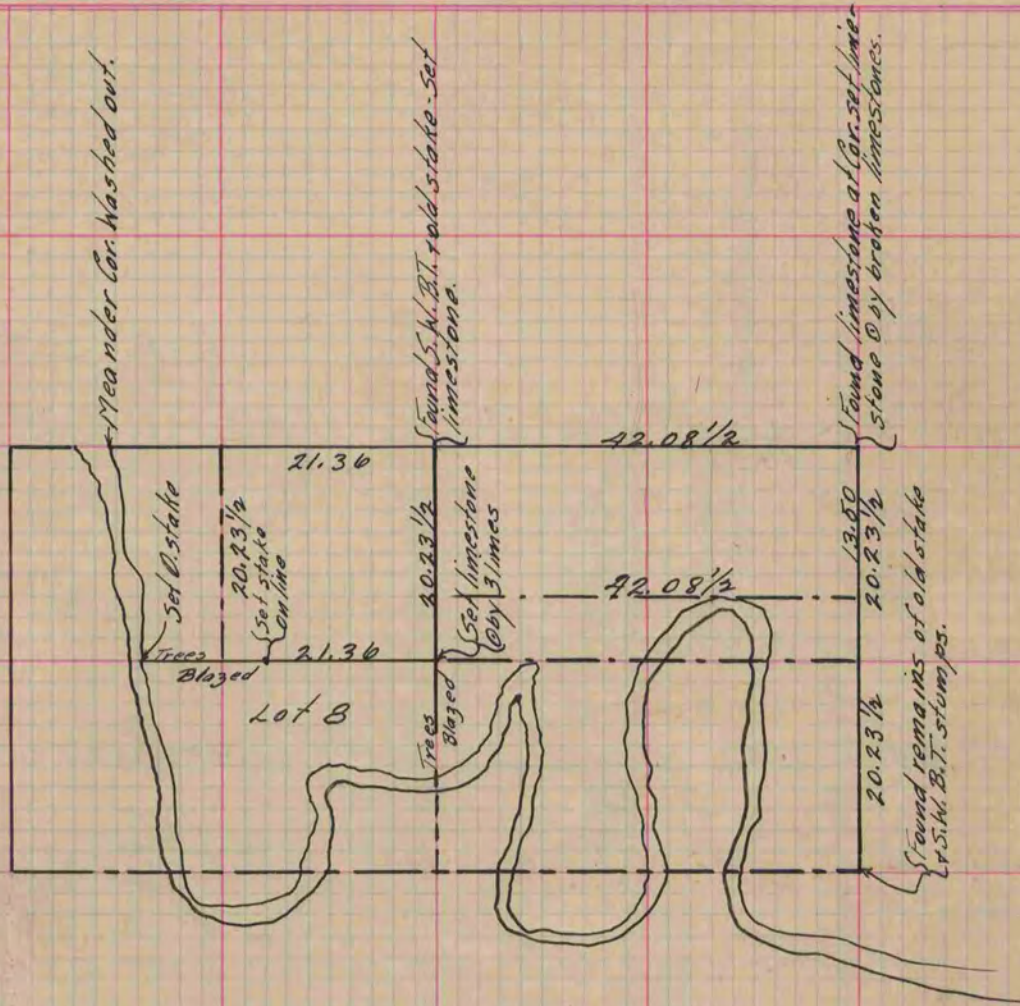 Meander Cor. Washed out.
Found S.W.B.T. & old stake - Set
limestone.
Found limestone at Cor. set lime-
stone ⊙ by broken limestones.
21.36
42.08 1/2
Set O. stake
20.23 1/2
Set stake
on line
20.23 1/2
Set limestone
⊙ by 3 limes
42.08 1/2
13.50
20.23 1/2
Trees
Blazed
21.36
Lot 8
Trees
Blazed
20.23 1/2
Found remains of old stake
& S.W.B.T. stumps.